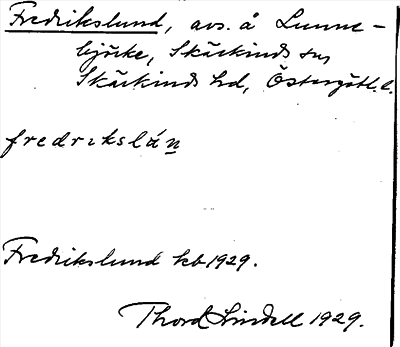 Fredrikslund, avs. å Lunne-
björke, Skärkinds sn,
Skärkinds hd, Östergötl. l.
fredrɪkslán
Fredrikslund kb 1929.
Thord Lindell 1929.